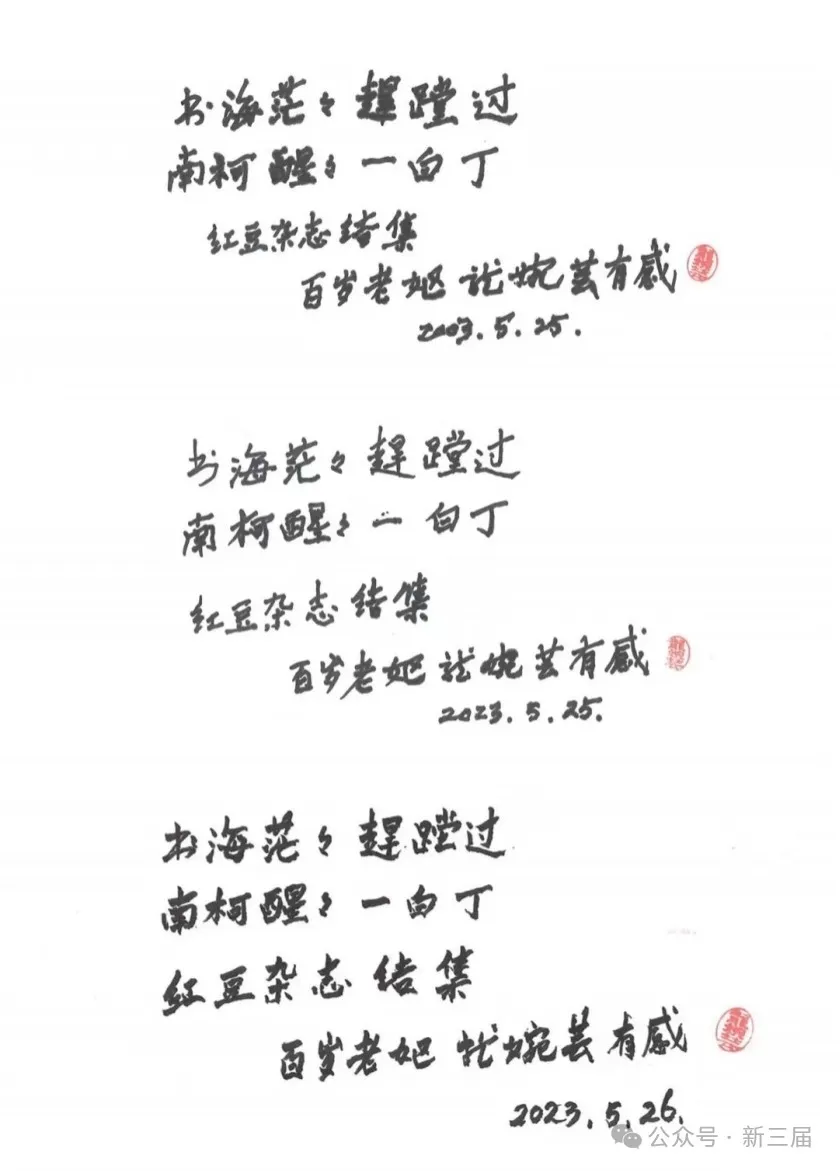 书海茫々趕蹚过
南柯醒々一白丁
红豆杂志结集
百岁老妪龍婉芸有感
2003.5.25.
书海茫々趕蹚过
南柯醒々一白丁
红豆杂志结集
百岁老妪龍婉芸有感
2023.5.25.
书海茫々趕蹚过
南柯醒々一白丁
红豆杂志结集
百岁老妪龍婉芸有感
2023.5.26.
公众号·新三届